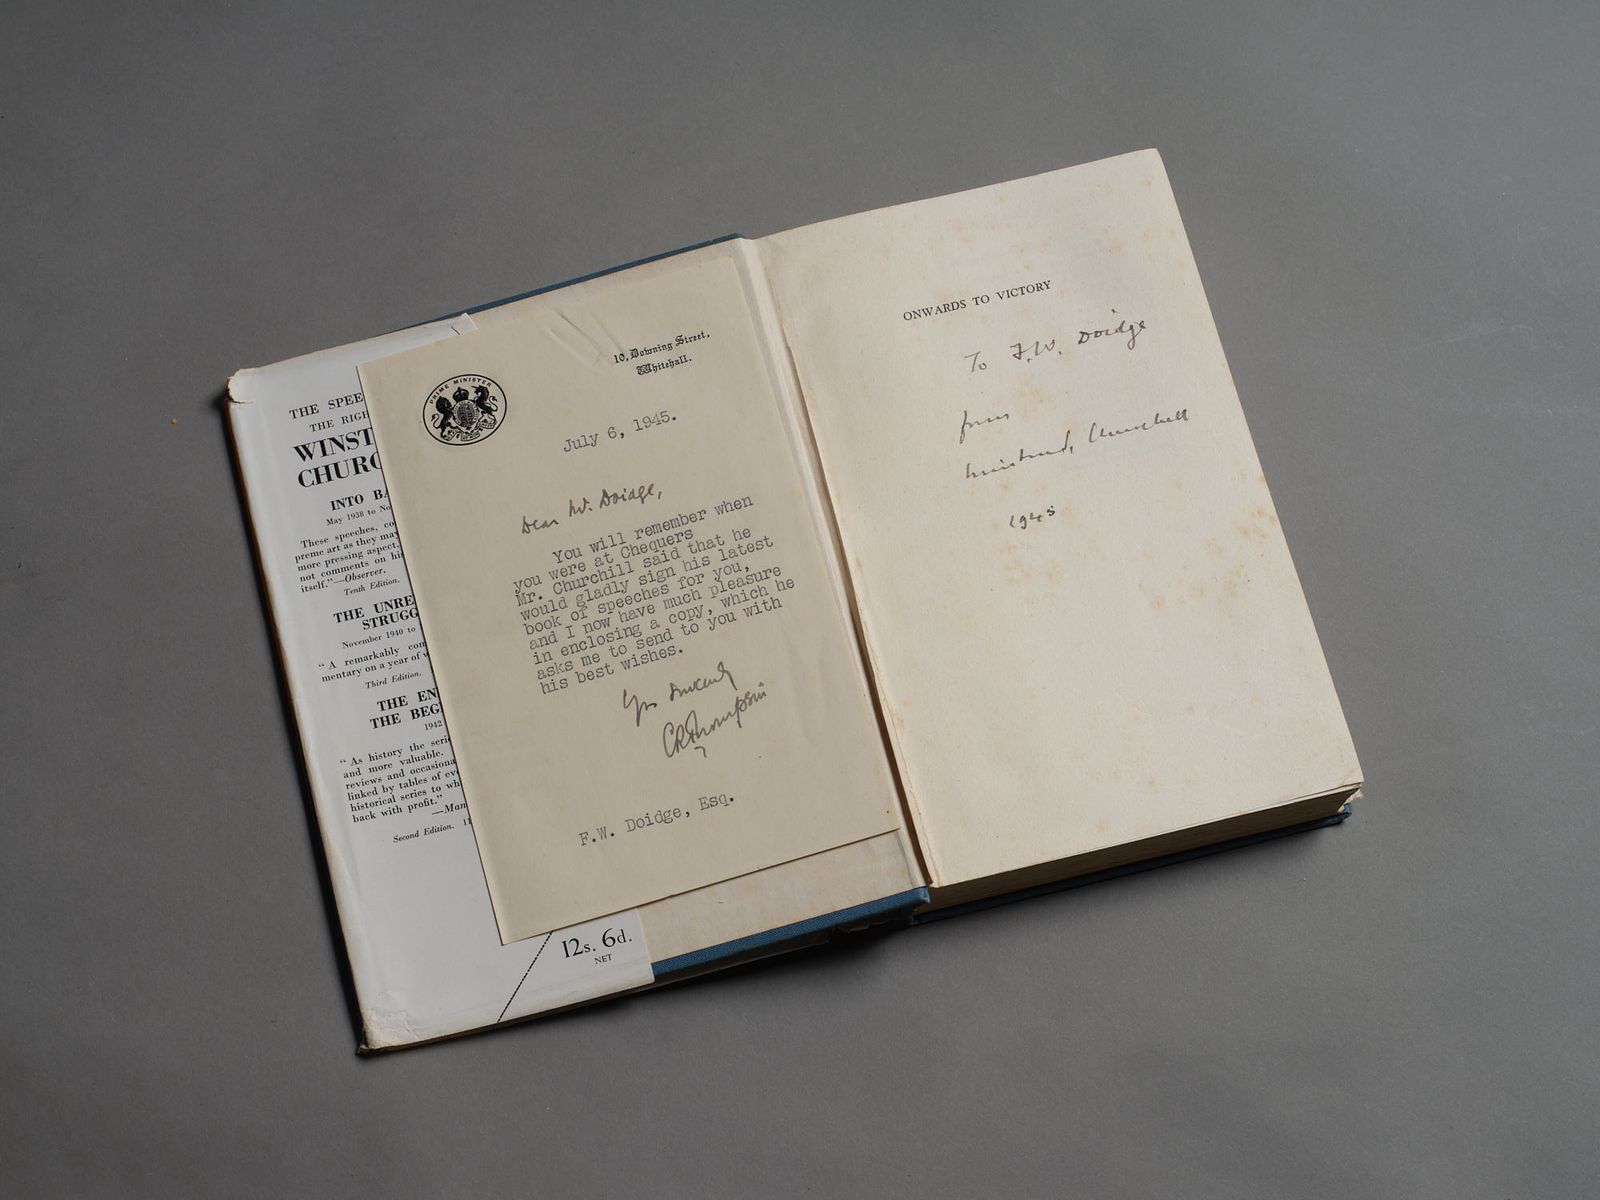 THE SPEE
THE RIGH
WINST
CHURC
INTO BA
May 1938 to No
These speeches, co
preme art as they may
more pressing aspect,
not comments on hi
itself."—Observer.
Tenth Edition.
THE UNRE
STRUGG
November 1940 to
"A remarkably com
mentary on a year of w
Third Edition.
THE EN
THE BEG
1942
"As history the seri
and more valuable.
reviews and occasiona
linked by tables of eve
historical series to wh
back with profit."
—Man
Second Edition. 11
12s. 6d.
NET
PRIME MINISTER
10, Downing Street,
Whitehall.
July 6, 1945.
Dear Mr. Doidge,
You will remember when
you were at Chequers
Mr. Churchill said that he
would gladly sign his latest
book of speeches for you,
and I now have much pleasure
in enclosing a copy, which he
asks me to send to you with
his best wishes.
Yrs sincerely
CRThompson
F.W. Doidge, Esq.
ONWARDS TO VICTORY
To F.W. Doidge
from
Winston S. Churchill
1945